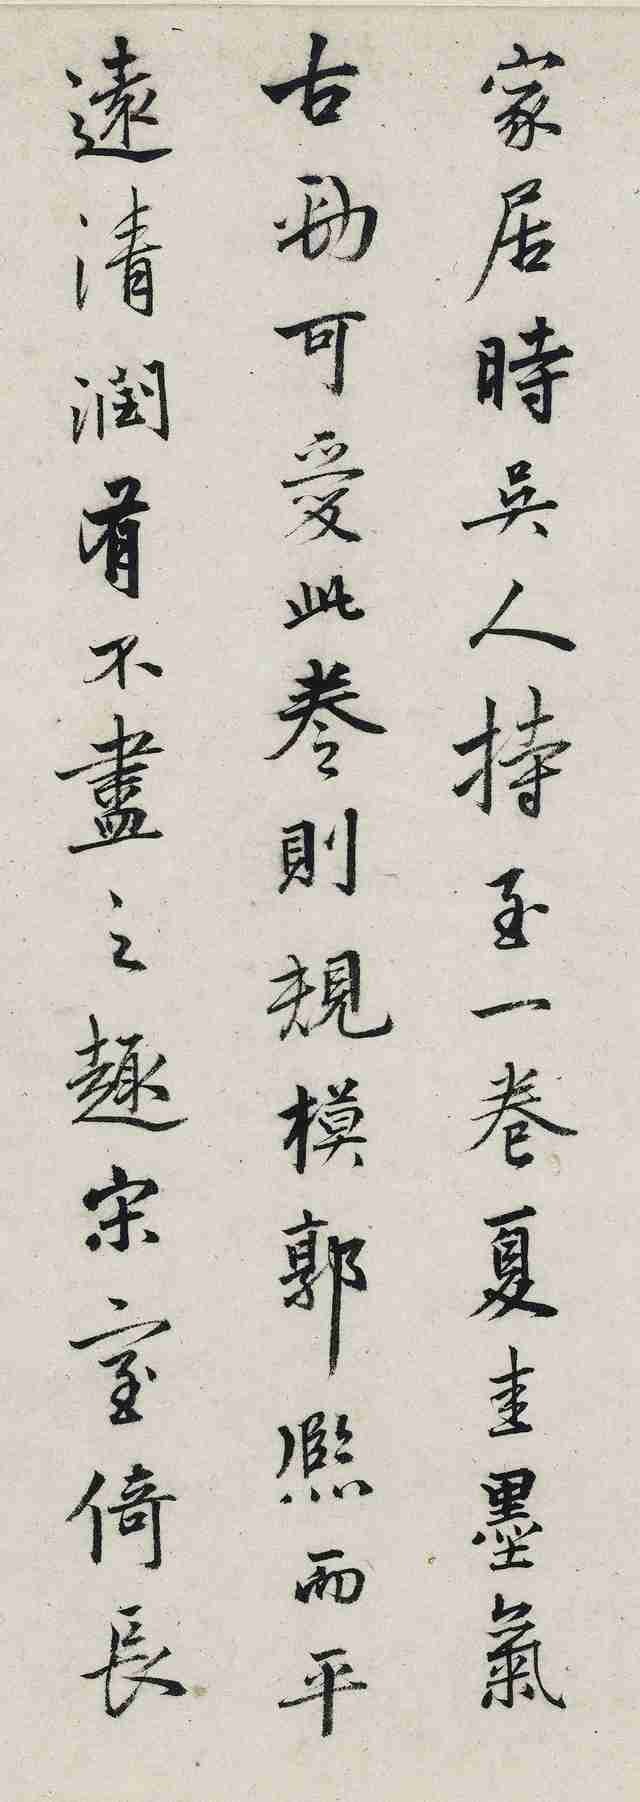 家居時吳人持至一卷夏圭墨氣
古勁可愛此卷則規模郭熙而平
遠清潤有不盡之趣宋室倚長